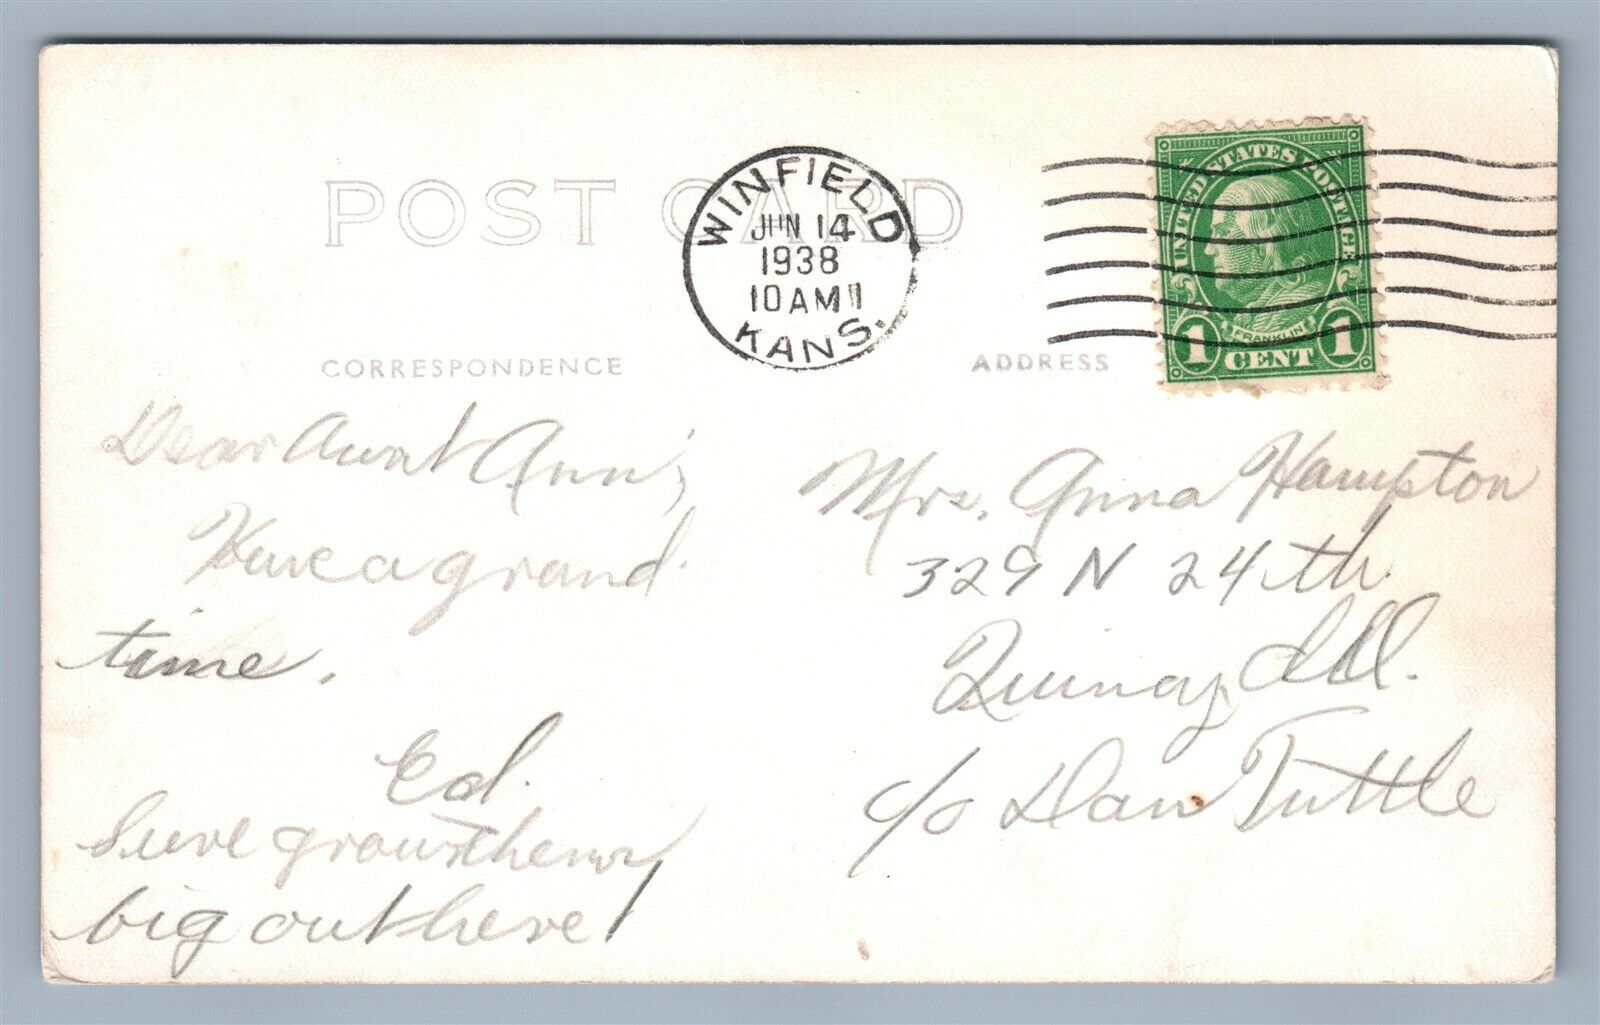 POST CARD
WINFIELD
JUN 14
1938
10 AM
KANS.
UNITED STATES POSTAGE
FRANKLIN
1 CENT 1
CORRESPONDENCE
ADDRESS
Dear Aunt Ann,
Have a grand
time.
Ed.
Sure grow them
big out here!
Mrs. Anna Hampton
329 N 24th
Quincy, Ill.
c/o Dan Tuttle